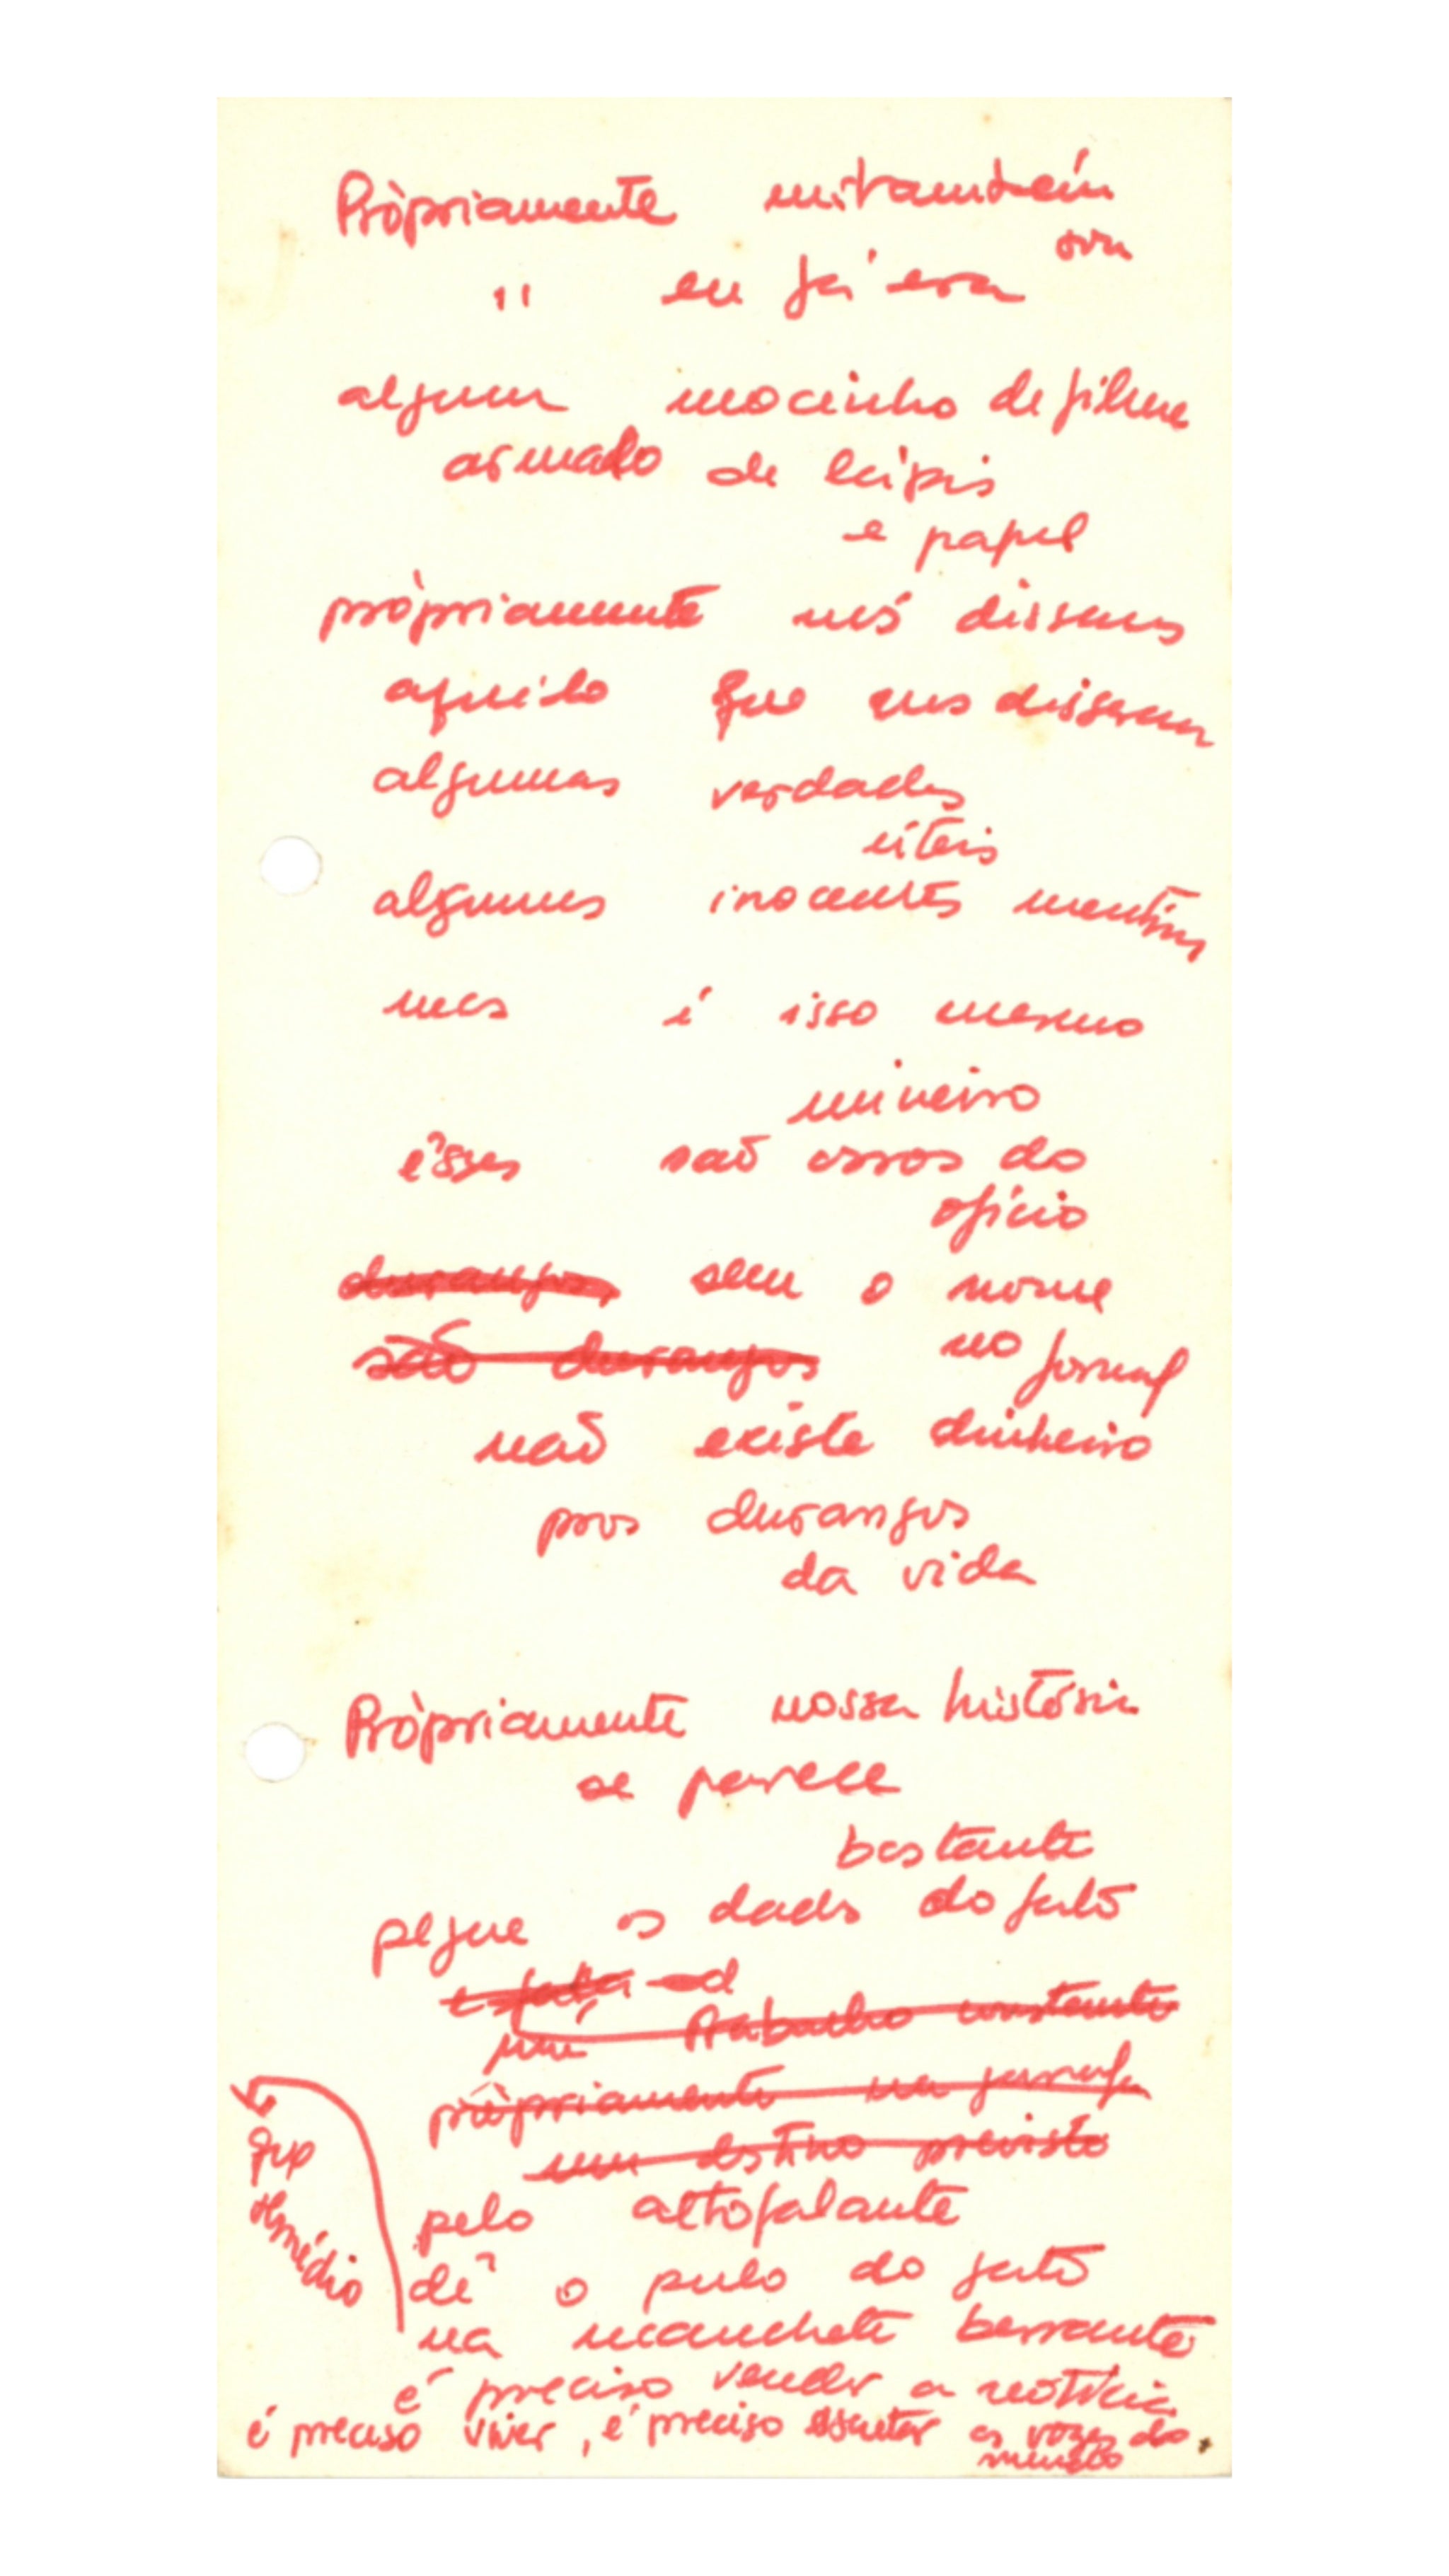 Pròpriamente eu também
" eu já era sou
algum mocinho de filme
armado de lápis
e papel
pròpriamente nós dissemos
aquilo que nos disseram
algumas verdades
úteis
algumas inocentes mentiras
mas é isso mesmo
mineiro
êsses são ossos do
ofício
durangos, sem o nome
são durangos no jornal
não existe dinheiro
pros durangos
da vida
Pròpriamente nossa história
se parece
bastante
pegue os dados do fato
trabalho constante
pròpriamente na garrafa
um destino previsto
pelo altofalante
dê o pulo do gato
na manchete berrante
é preciso vender a notícia
é preciso viver, é preciso escutar as vozes do
mundo
que
remédio